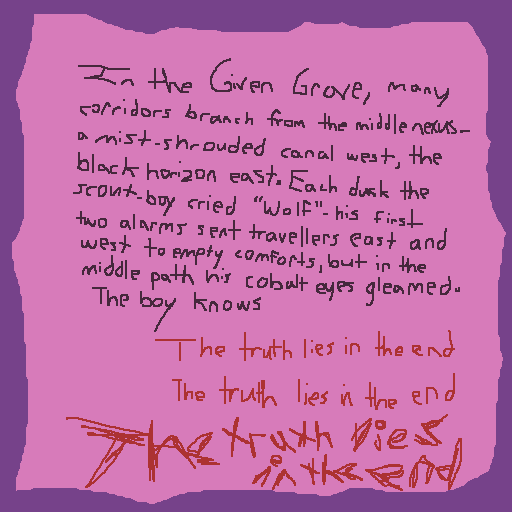 In the Given Grove, many
corridors branch from the middle nexus-
a mist-shrouded canal west, the
black horizon east. Each dusk the
scout-boy cried "Wolf"- his first
two alarms sent travellers east and
west to empty comforts, but in the
middle path his cobalt eyes gleamed.
The boy knows
The truth lies in the end
The truth lies in the end
The truth lies
in the end